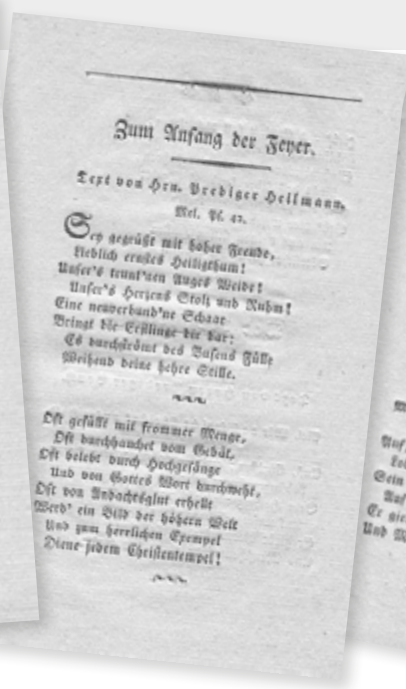 Zum Anfang der Feyer.
Text von Hrn. Prediger Heilmann.
Mel. Ps. 42.
Sey gegrüßt mit hoher Freude,
Lieblich ernstes Heiligthum!
Unser's trunk'nen Auges Weide!
Unser's Herzens Stolz und Ruhm!
Eine neuverbund'ne Schaar
Bringt die Erstlinge dir dar:
Es durchströmt des Busens Fülle
Weihend deine hehre Stille.
Oft gefüllt mit frommer Menge,
Oft durchhauchet vom Gebät,
Oft belebt durch Hochgesänge
Und von Gottes Wort durchweht,
Oft von Andachtsglut erhellt
Werd' ein Bild der höhern Welt
Und zum herrlichen Exempel
Diene jedem Christentempel!
Auf
Sein
Er
Und